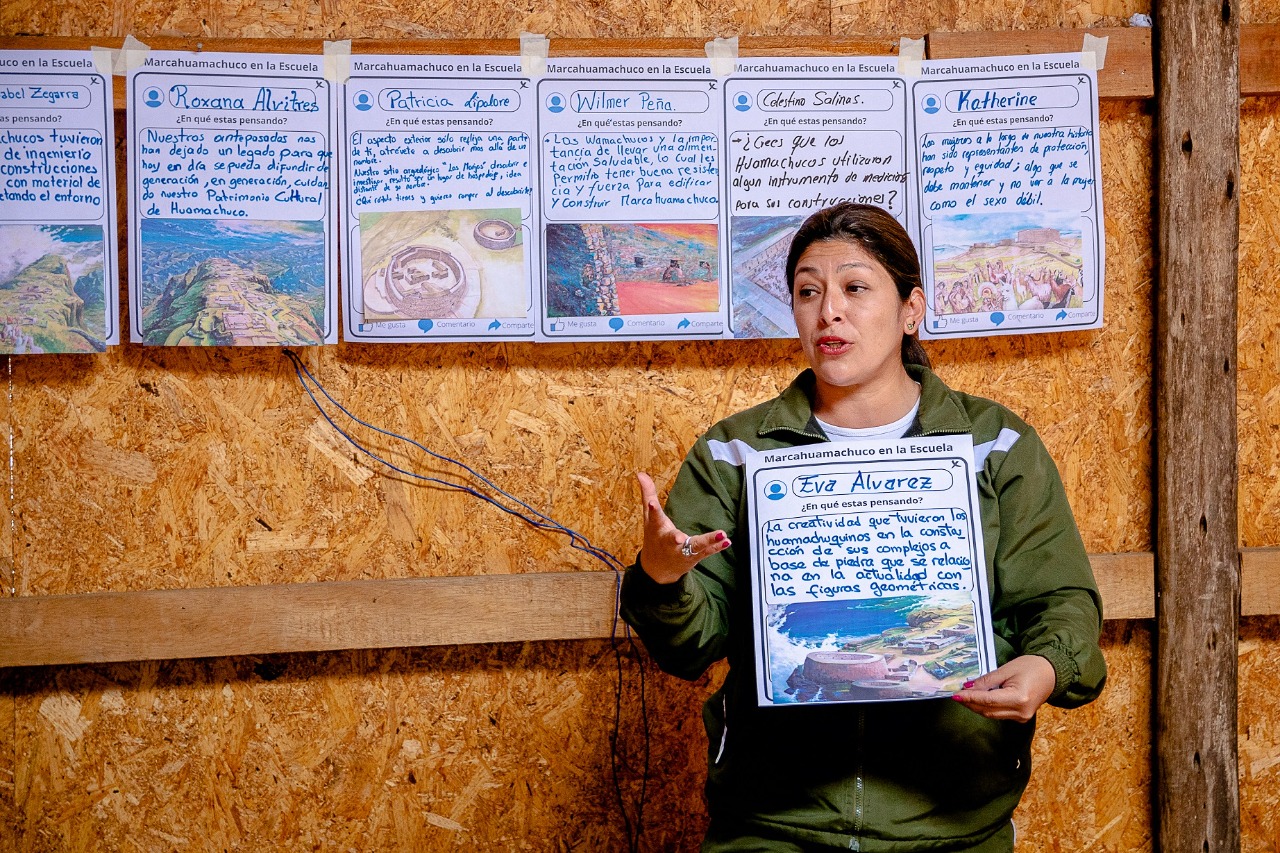 co en la Escuela
abel Zegarra
estas pensando?
chucos tuvieron
de ingeniería
construcciones
con material de
etando el entorno
Marcahuamachuco en la Escuela
Roxana Alvitres
¿En qué estas pensando?
Nuestros antepasados nos
han dejado un legado para que
hoy en día se pueda difundir de
generación, en generación, cuidan
do nuestro Patrimonio Cultural
de Huamachuco.
Marcahuamachuco en la Escuela
Patricia Lipalore
¿En qué estas pensando?
El aspecto exterior solo refleja una parte
de ti, atrévete a descubrir mas allá de un
nombre.
Nuestro sitio arqueológico "Las Monjas" descubrir e
investigar, resultó ser un lugar de hospedaje, idea
distante de su nombre.
¡Qué rótulo tienes y quieres romper al descubrirte!
Me gusta
Comentario
Comparte
Marcahuamachuco en la Escuela
Wilmer Peña.
¿En qué estas pensando?
Los Wamachucos y la impor
tancia de llevar una alimen-
tación Saludable, lo cual les
Permitio tener buena resisten
cia y fuerza Para edificar
y Construir Marcahuamachuco
Me gusta
Comentario
Comparte
Marcahuamachuco en la Escuela
Celestino Salinas.
¿En qué estas pensando?
→ ¿Crees que los
Huamachucos utilizaron
algun instrumento de medición
para sus construcciones?
Marcahuamachuco en la Escuela
Katherine
¿En qué estas pensando?
Las mujeres a lo largo de nuestra historia
han sido representantes de protección,
respeto y equidad; algo que se
debe mantener y no ver a la mujer
como el sexo débil.
Me gusta
Comentario
Comparte
Marcahuamachuco en la Escuela
Eva Alvarez
¿En qué estas pensando?
La creatividad que tuvieron los
huamachuquinos en la constru_
cción de sus complejos a
base de piedra que se relacio
na en la actualidad con
las figuras geométricas.